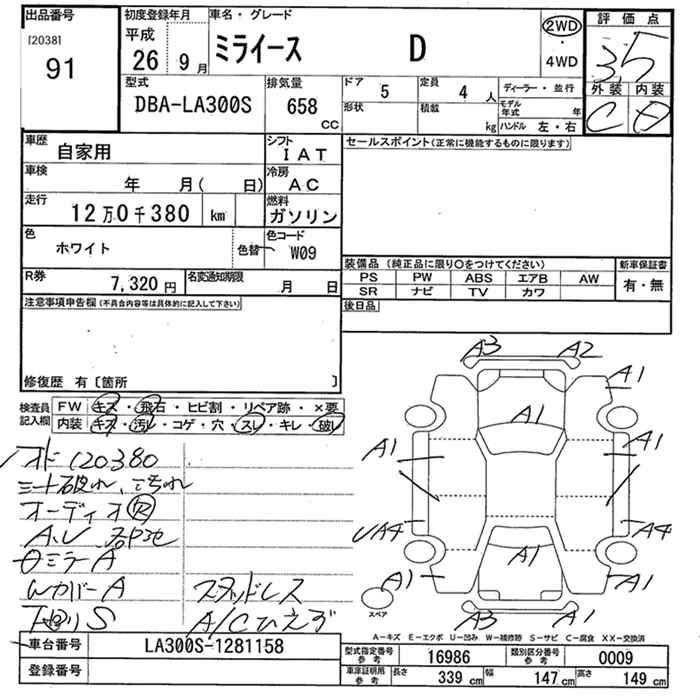 出品番号
[20381
91
初度登録年月
平成
26 9 月
車名・グレード
ミライース D
2WD
・
4WD
評価点
3.5
外装 内装
C
型式
DBA-LA300S
排気量
658
CC
ドア 5
形状
定員 4 人
積載 kg
ディーラー・並行
モデル年式 年
ハンドル 左・右
車歴
自家用
シフト
IAT
セールスポイント(正常に機能するものに限ります)
車検
年 月( 日)
冷房
AC
走行
12万0千380 km
燃料
ガソリン
色
ホワイト
色替
色コード
W09
R券 7,320円
名変通知期限 月 日
装備品(純正品に限り〇をつけてください)
新車保証書
PS PW ABS エアB AW
SR ナビ TV カワ
有・無
後日品
注意事項申告欄(不具合内容等は具体的に記入して下さい)
修復歴 有[箇所 ]
検査員記入欄
FW キズ・飛石・ヒビ割・リペア跡・×要
内装 キズ・汚レ・コゲ・穴・スレ・キレ・破レ
120380
シート破れ、こもれ
オーディオ
ミラーA
カバーA スタッドレス
下廻りS A/Cひえず
A3 A2
A1
A1
A1 A1
UA4 A4
A1
A1 A1
A3 A1
スペア
A-キズ E-エクボ U-凹み W-補修跡 S-サビ C-腐食 XX-交換済
車台番号 LA300S-1281158
登録番号
型式指定番号参考 16986
類別区分番号参考 0009
車庫証明用参考 長さ 339 cm 幅 147 cm 高さ 149 cm